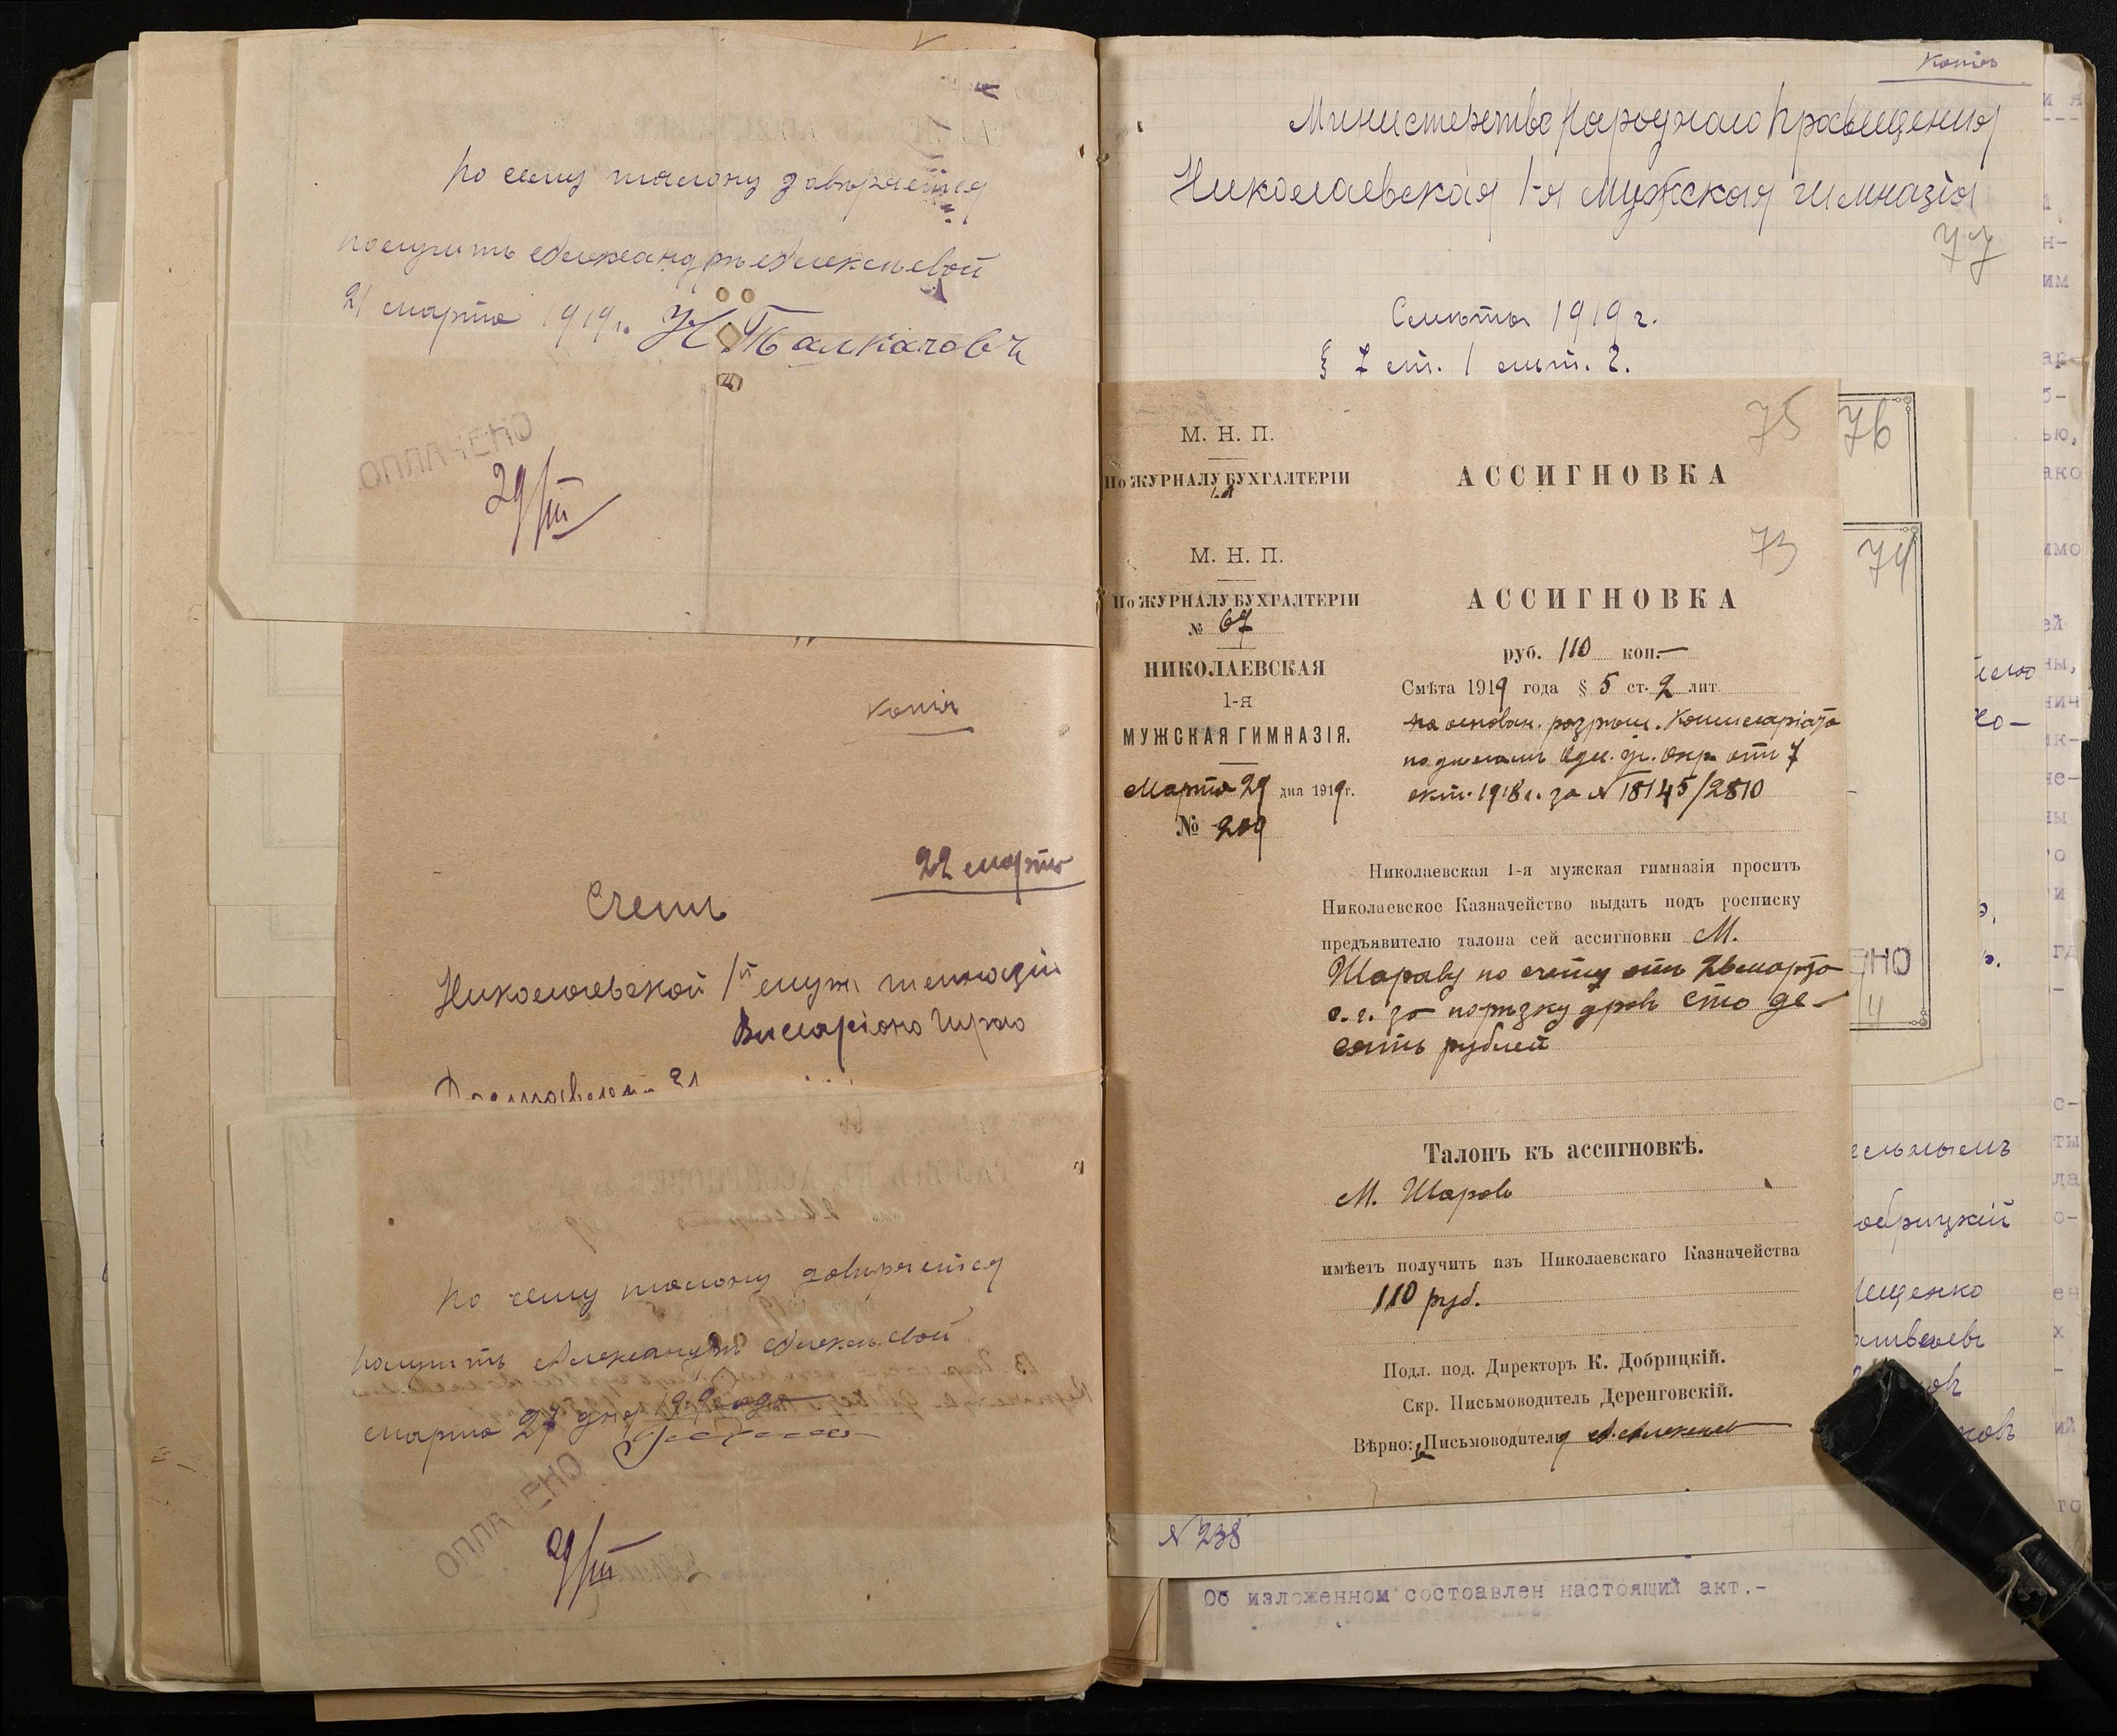 По сему талону довѣряется
получить Александрѣ Алексѣевой
21 марта 1919 г.
ОПЛАЧЕНО
29/III
Копія
22 марта
Счетъ
Николаевской 1й муж. гимназіи
Виссаріона
По сему талону довѣряется
получить Александрѣ Алексѣевой
марта 27 дня 1919 года
ОПЛАЧЕНО
29/III
Копія
Министерство Народнаго Просвѣщенія
Николаевская 1-я мужская гимназія
77
Смѣты 1919 г.
§ 7 ст. 1 лит. 2.
75
76
М. Н. П.
По ЖУРНАЛУ БУХГАЛТЕРІИ
АССИГНОВКА
73
74
М. Н. П.
По ЖУРНАЛУ БУХГАЛТЕРІИ
№ 67
НИКОЛАЕВСКАЯ
1-я
МУЖСКАЯ ГИМНАЗІЯ.
Марта 29 дня 1919 г.
№ 209
АССИГНОВКА
руб. 110 коп. —
Смѣта 1919 года § 5 ст. 2 лит
на основан. разрѣш. Комиссаріата
по дѣламъ Одес. уч. Окр. отъ 7
окт. 1918 г. за № 18145/2810
Николаевская 1-я мужская гимназія проситъ
Николаевское Казначейство выдать подъ росписку
предъявителю талона сей ассигновки М.
Шарову по счету отъ 26 марта
с. г. за порѣзку дровъ сто де-
сять рублей
Талонъ къ ассигновкѣ.
М. Шаровъ
имѣетъ получить изъ Николаевскаго Казначейства
110 руб.
Подл. под. Директоръ К. Добрицкій.
Скр. Письмоводитель Деренговскій.
Вѣрно: Письмоводитель А. Алексѣев
№ 238
Об изложенном состоавлен настоящий акт.-